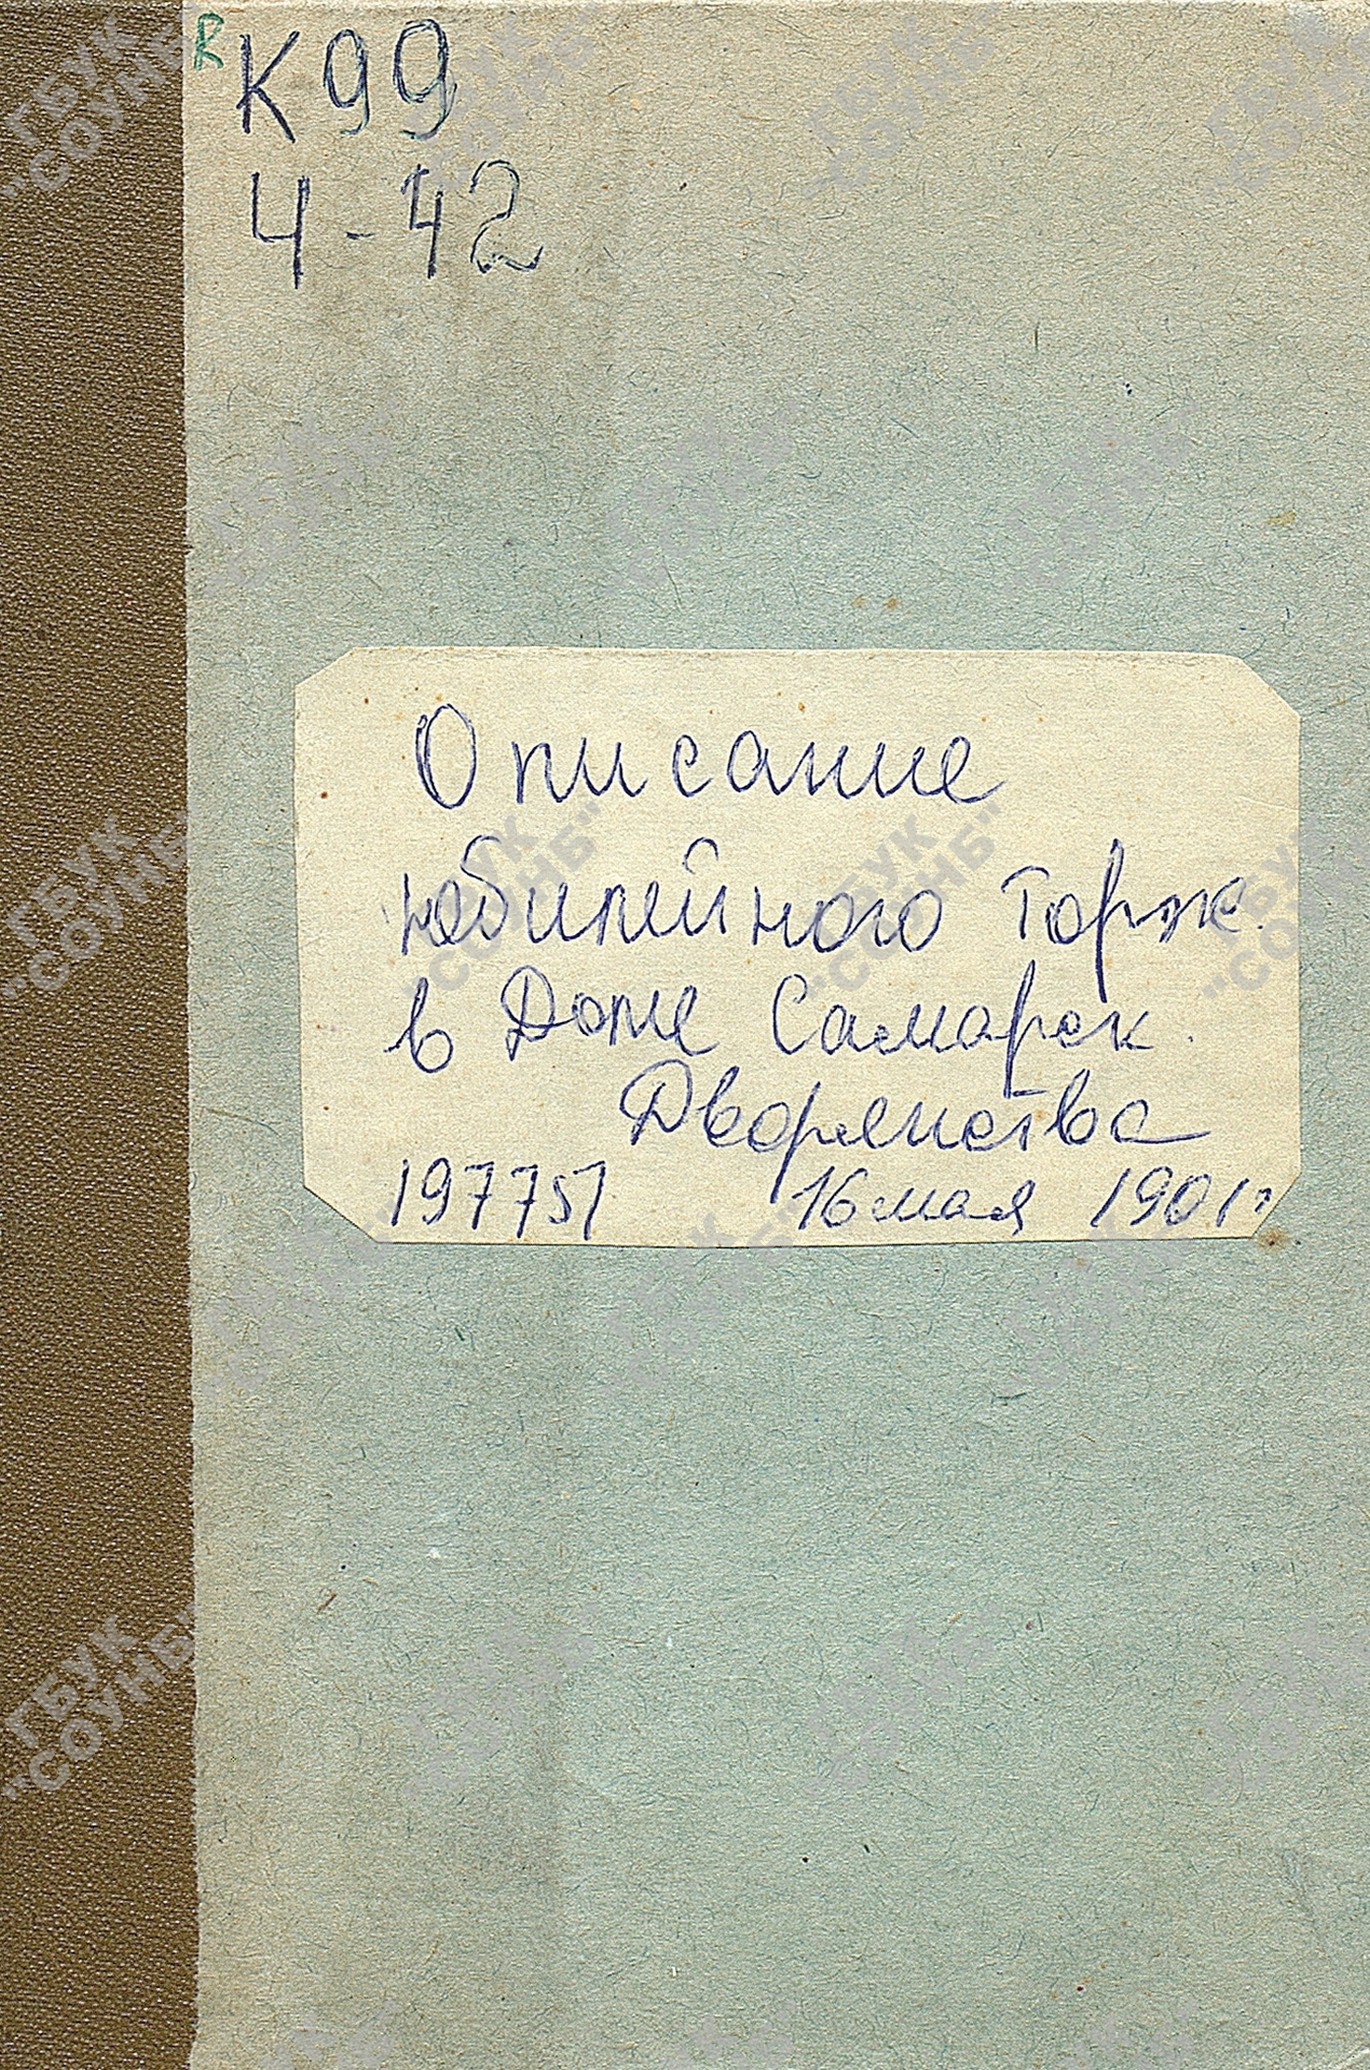 R
К99
Ч-42
Описание
юбилейного торж.
в Доме Самарск.
Дворянства
197751 16 мая 1901г
ГБУК
"СОУНБ"